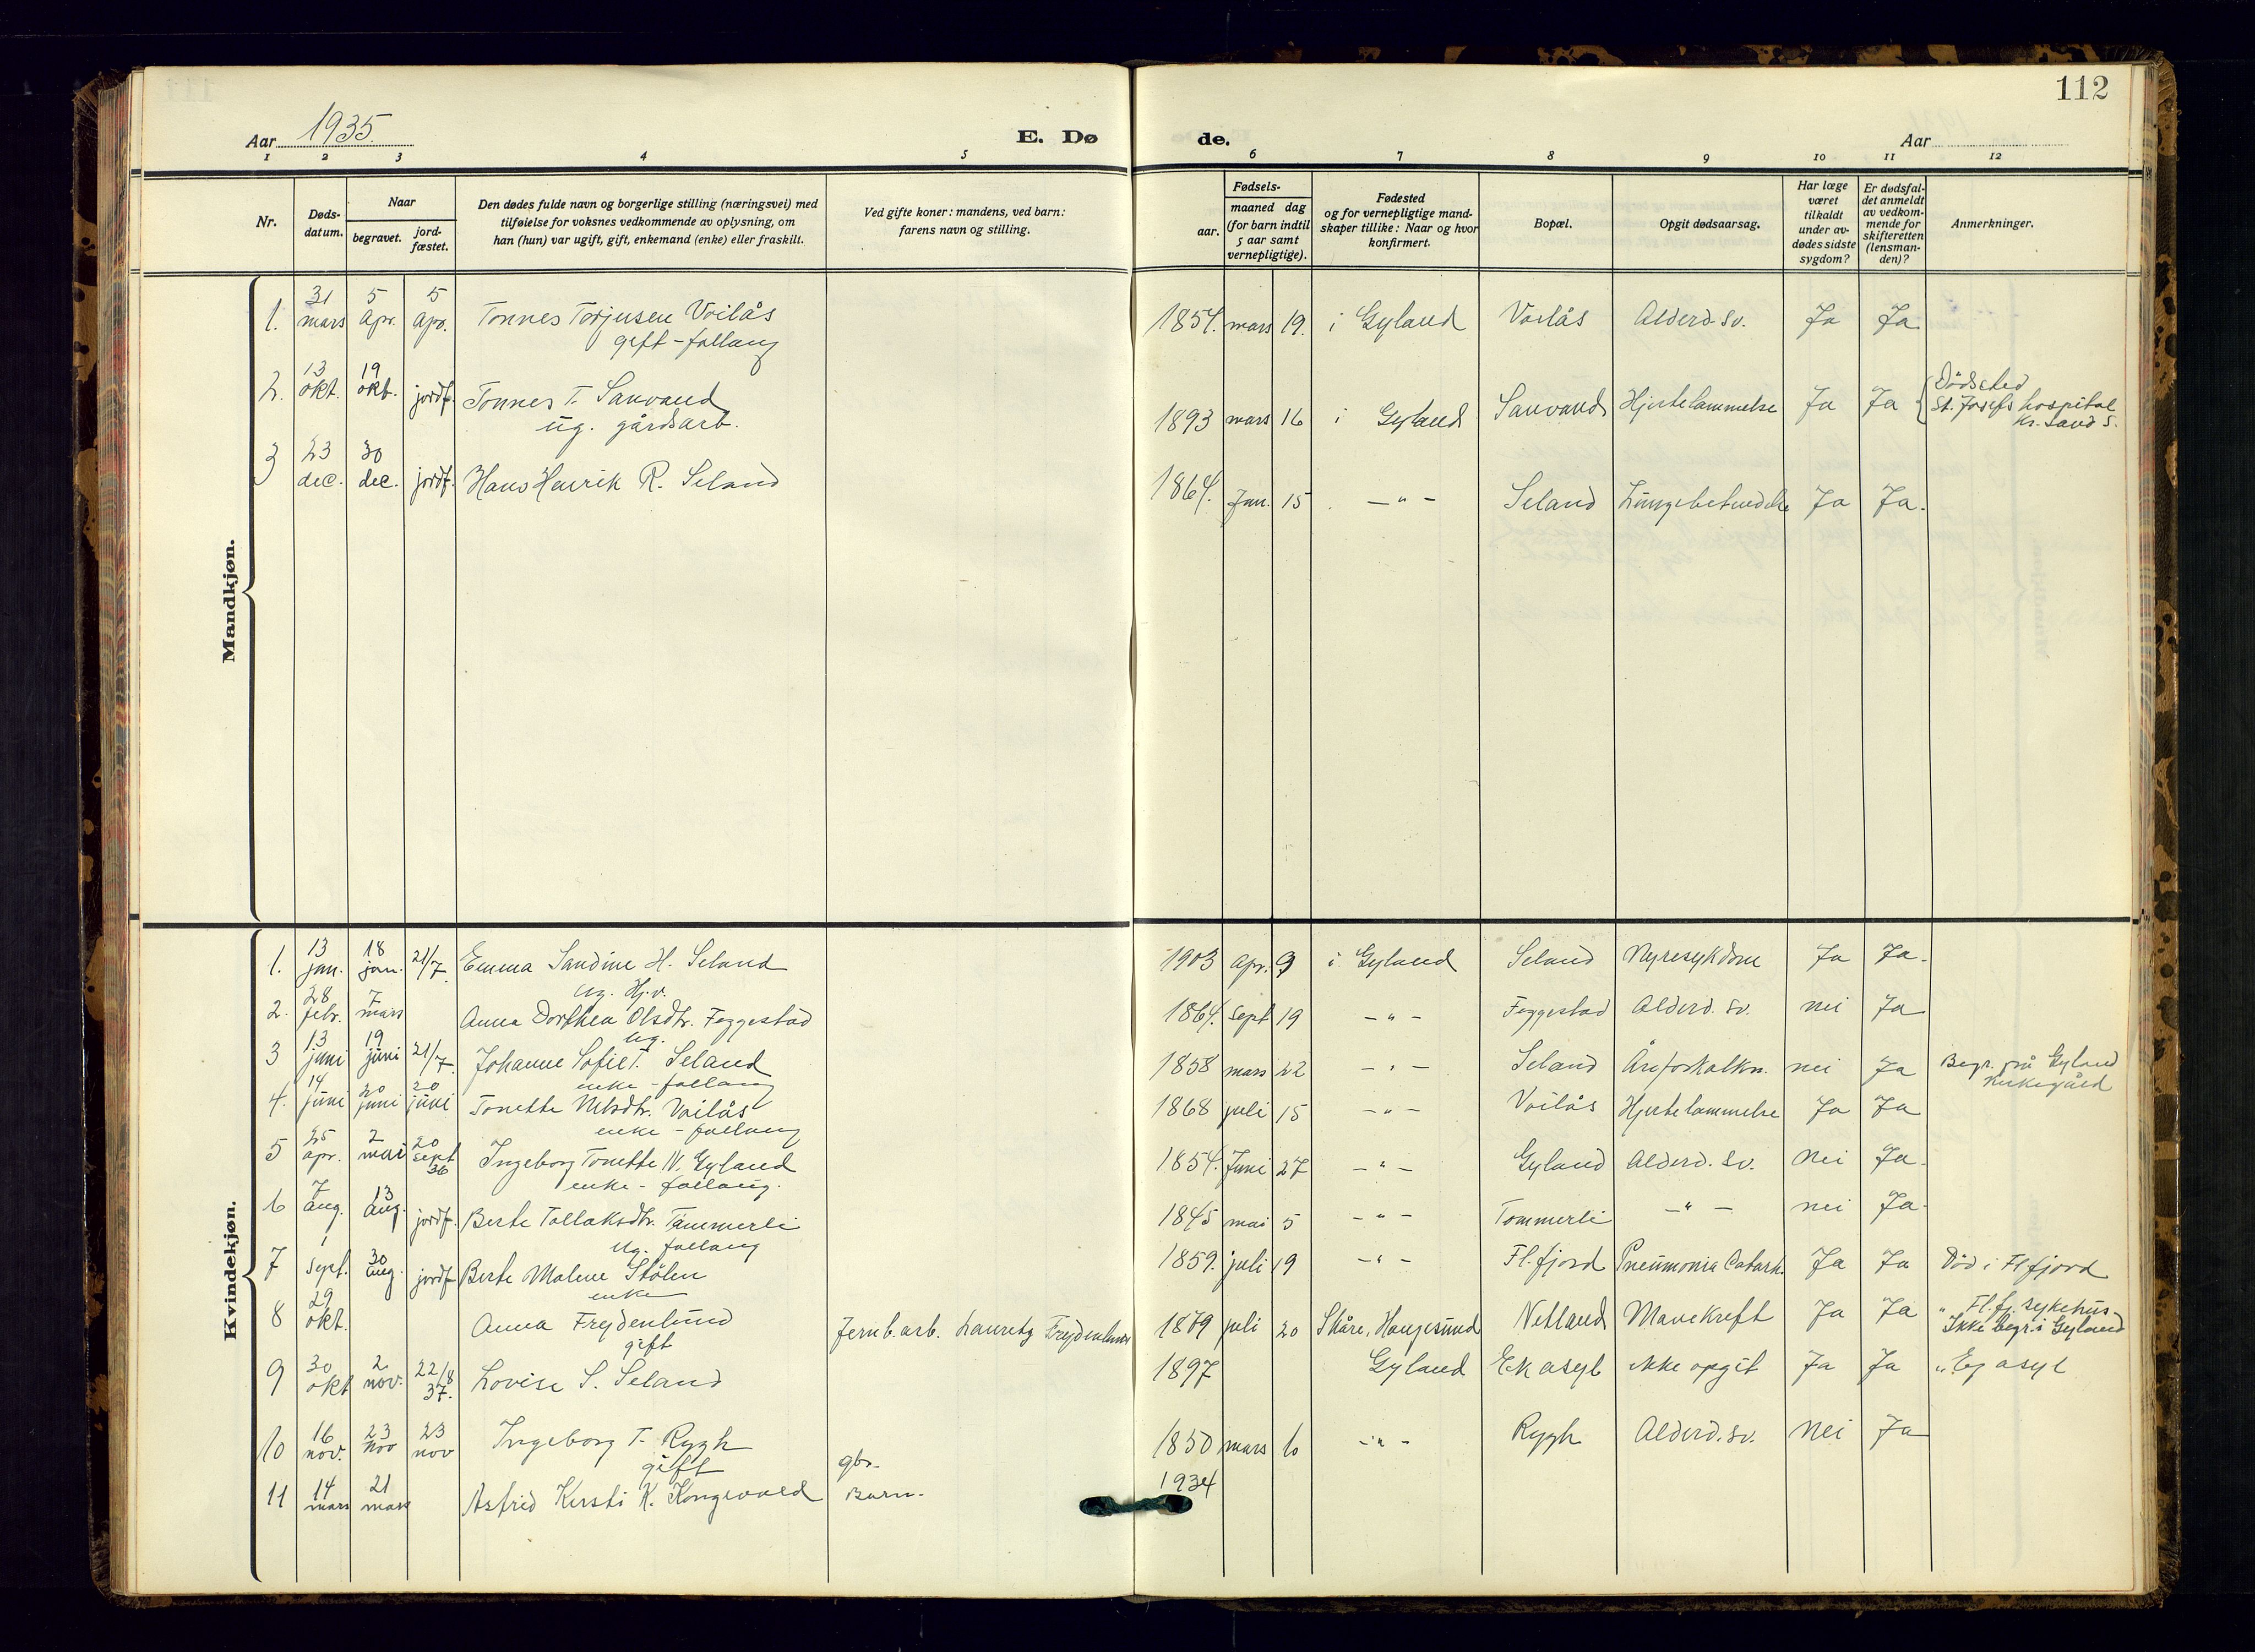 112
Aar 1935.
E. Dø de.
Aar
1 2 3 4 5 6 7 8 9 10 11 12
Nr.
Døds-
datum.
Naar
begravet.
jord-
fæstet.
Den dødes fulde navn og borgerlige stilling (næringsvei) med
tilføielse for voksnes vedkommende av oplysning, om
han (hun) var ugift, gift, enkemand (enke) eller fraskilt.
Ved gifte koner: mandens, ved barn:
farens navn og stilling.
Fødsels-
aar.
maaned dag
(for barn indtil
5 aar samt
vernepligtige).
Fødested
og for vernepligtige mand-
skaper tillike: Naar og hvor
konfirmert.
Bopæl.
Opgit dødsaarsag.
Har læge
været
tilkaldt
under av-
dødes sidste
sygdom?
Er dødsfal-
det anmeldt
av vedkom-
mende for
skifteretten
(lensman-
den)?
Anmerkninger.
Mandkjøn.
1. 31 mars 5 Apr. 5 Apr. Tønnes Torjusen Voilås 1854. mars 19. i Gyland Voilås Alderd. sv. Ja Ja
gift - follaug
2. 13 okt. 19 okt. jordf. Tønnes T. Sanvand 1893 mars 16 i Gyland Sanvand Hjertelammelse Ja Ja Dödsted
ug. gårdsarb. St. Josefs hospital
Kr. sand S.
3 23 dec. 30 dec. jordf. Hans Henrik R. Seland 1864. Jan. 15 - " - Seland Lungebetendelse Ja Ja.
Kvindekjøn.
1. 13 jan. 18 jan. 21/7. Emma Sandine H. Seland 1903 apr. 9 i Gyland Seland Nyresykdom Ja Ja.
ug. Hj.v.
2. 28 febr. 7 mars Anna Dorthea Olsdtr. Feggestad 1864. sept 19 - " - Feggestad Alderd. sv. nei Ja
ug.
3 13 juni 19 juni 21/7. Johanne Sofie T. Seland 1858 mars 22 - " - Seland Åreforkalkn. nei Ja Begr. på Gyland
enke - follaug kirkegård
4. 14 juni 20 juni 20 juni Tonette Nilsdtr. Voilås 1868 juli 15 - " - Voilås Hjertelammelse Ja Ja
enke - follaug
5 25 apr. 2 mai 20 sept 36 Ingeborg Tonette N. Gyland 1854. Juni 27 - " - Gyland Alderd. sv. Nei Ja.
enke - follaug.
6 7 aug. 13 aug. jordf. Berte Tollaksdtr. Tømmerli 1845 mai 5 - " - Tømmerli - " - nei Ja.
ug. follaug
7 1 sept. 30 aug. jordf Berte Malene Stölen 1859. juli 19 - " - Fl.fjord Pneumonia Catarh. Ja Ja Död i Fl fjord
enke
8 29 okt. Anna Frydenlund Jernb. arb. Lauretz Frydenlund 1879 juli 20 Skåre, Haugesund Netland Mavekreft Ja Ja " Fl.fj. sykehus
gift Ikke begr. i Gyland
9 30 okt 2 nov. 22/8 37. Lovise S. Seland 1897 Gyland Ek asyl ikke opgit Ja Ja " Eg asyl
10 16 nov. 23 nov 23 nov Ingeborg T. Rygh 1850 mars 6 - " - Rygh Alderd. sv. Nei Ja
gift gbr.
11 14 mars 21 mars Astrid Kersti K. Kongevold Barn. 1934